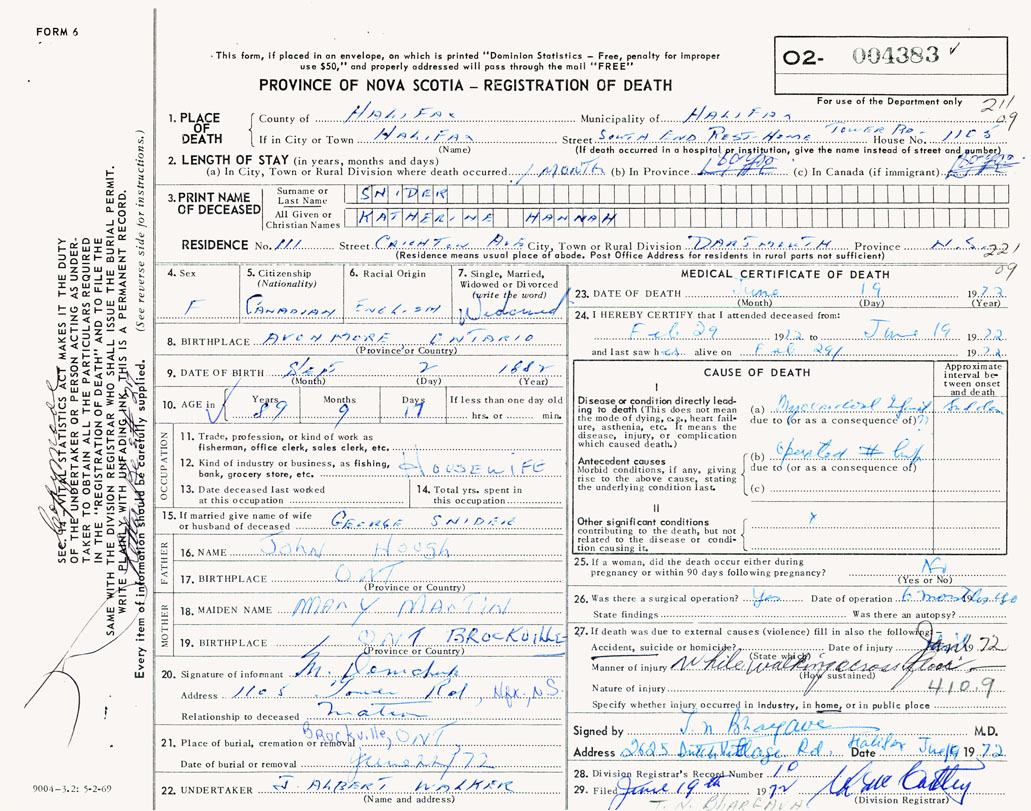 FORM 6
O2- 004383
This form, if placed in an envelope, on which is printed "Dominion Statistics – Free, penalty for improper
use $50," and properly addressed will pass through the mail "FREE"
PROVINCE OF NOVA SCOTIA – REGISTRATION OF DEATH
For use of the Department only
211
09
1. PLACE OF DEATH
County of HALIFAX Municipality of HALIFAX
If in City or Town HALIFAX Street SOUTH END REST-HOME TOWER RD. House No. 1105
(Name) (If death occurred in a hospital or institution, give the name instead of street and number)
2. LENGTH OF STAY (in years, months and days)
(a) In City, Town or Rural Division where death occurred 1 MONTH (b) In Province (c) In Canada (if immigrant)
3. PRINT NAME OF DECEASED
Surname or Last Name SNIDER
All Given or Christian Names KATHERINE HANNAH
RESIDENCE No. 111 Street CRICHTON AVE City, Town or Rural Division DARTMOUTH Province N.S.
(Residence means usual place of abode. Post Office Address for residents in rural parts not sufficient)
221
09
4. Sex F
5. Citizenship (Nationality) CANADIAN
6. Racial Origin ENGLISH
7. Single, Married, Widowed or Divorced (write the word) Widowed
8. BIRTHPLACE AVONMORE ONTARIO
(Province or Country)
9. DATE OF BIRTH Sept 2 1882
(Month) (Day) (Year)
10. AGE Years 89 Months 9 Days 17 If less than one day old
hrs. or min.
OCCUPATION
11. Trade, profession, or kind of work as
fisherman, office clerk, sales clerk, etc.
12. Kind of industry or business, as fishing,
bank, grocery store, etc. HOUSEWIFE
13. Date deceased last worked
at this occupation
14. Total yrs. spent in
this occupation
15. If married give name of wife
or husband of deceased GEORGE SNIDER
FATHER
16. NAME John Hough
17. BIRTHPLACE ONT
(Province or Country)
MOTHER
18. MAIDEN NAME MARY MARTIN
19. BIRTHPLACE ONT BROCKVILLE
(Province or Country)
20. Signature of informant
Address 1105 Tower Rd, Hfx, N.S.
Relationship to deceased Matron
21. Place of burial, cremation or removal Brockville, ONT
Date of burial or removal June 22/72
22. UNDERTAKER J. ALBERT WALKER
(Name and address)
MEDICAL CERTIFICATE OF DEATH
23. DATE OF DEATH June 19 1972
(Month) (Day) (Year)
24. I HEREBY CERTIFY that I attended deceased from:
Feb 29 1972 to June 19 1972
and last saw her alive on Feb 29/ 1972
CAUSE OF DEATH
Approximate interval between onset and death
I
Disease or condition directly leading
to death (This does not mean
the mode of dying, e.g., heart failure,
asthenia, etc. It means the
disease, injury, or complication
which caused death.)
(a) Myocardial Sudden
due to (or as a consequence of)
Antecedent causes
Morbid conditions, if any, giving
rise to the above cause, stating
the underlying condition last.
(b) Operated # hip
due to (or as a consequence of)
(c)
II
Other significant conditions
contributing to the death, but not
related to the disease or condition
causing it.
25. If a woman, did the death occur either during
pregnancy or within 90 days following pregnancy? No
(Yes or No)
26. Was there a surgical operation? Yes Date of operation 6 months ago
State findings Was there an autopsy?
27. If death was due to external causes (violence) fill in also the following:
Accident, suicide or homicide? Date of injury Jan 1972
(State which)
Manner of injury While walking across floor
(How sustained)
Nature of injury 410.9
Specify whether injury occurred in industry, in home, or in public place
Signed by T. N. Bhargava M.D.
Address 2625 Dutch Village Rd. Halifax Date June 19 1972
28. Division Registrar's Record Number 10
29. Filed June 19th 1972
(Division Registrar)
T. N. BHARGAVA
SEC. 14 VITAL STATISTICS ACT MAKES IT THE DUTY
OF THE UNDERTAKER OR PERSON ACTING AS UNDERTAKER
TO OBTAIN ALL THE PARTICULARS REQUIRED
IN THE "REGISTRATION OF DEATH" AND TO FILE THE
SAME WITH THE DIVISION REGISTRAR WHO SHALL ISSUE THE BURIAL PERMIT.
WRITE PLAINLY WITH UNFADING INK, THIS IS A PERMANENT RECORD.
Every item of information should be carefully supplied. (See reverse side for instructions.)
9004-3.2: 5-2-69